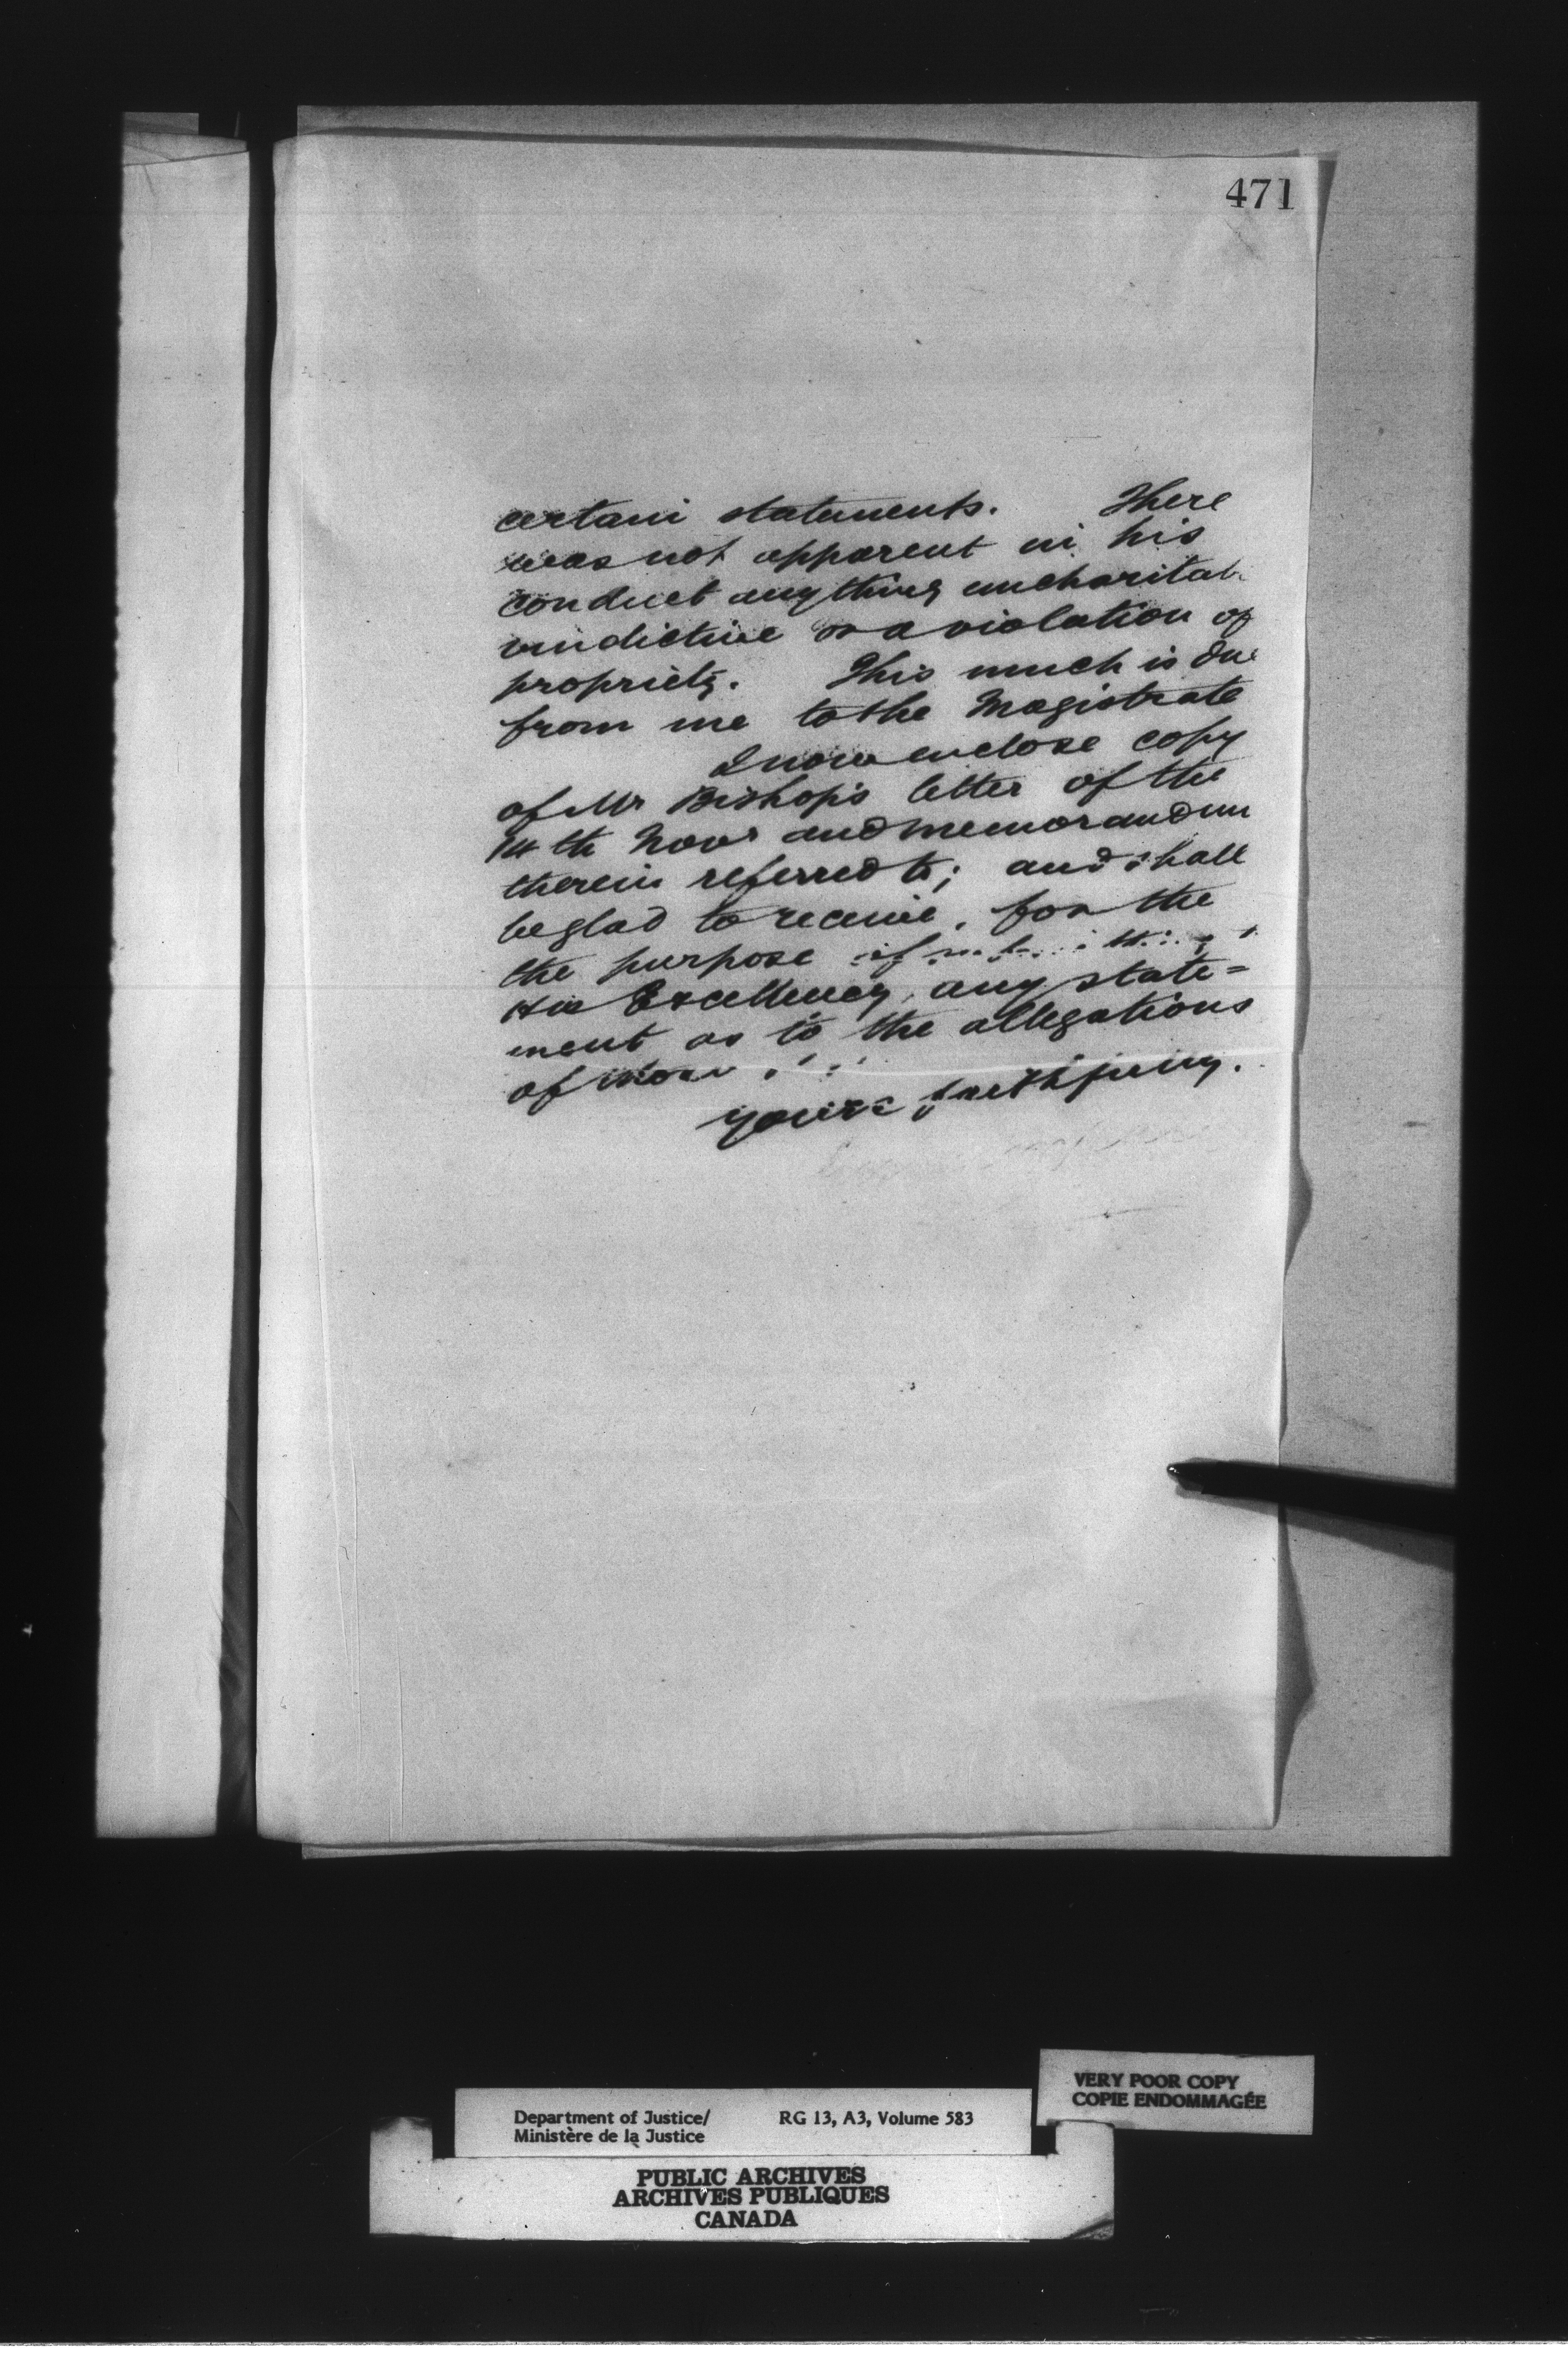 471
certain statements. There
was not apparent in his
conduct anything uncharitab
vindictive or a violation of
propriety. This much is due
from me to the Magistrate
I now enclose copy
of Mr Bishop's letter of the
14th Novr and memorandum
therein referred to; and shall
be glad to receive, for the
the purpose of
His Excellency, any state=
ment as to the allegations
of
yours faithfully.
VERY POOR COPY
COPIE ENDOMMAGÉE
Department of Justice/ RG 13, A3, Volume 583
Ministère de la Justice
PUBLIC ARCHIVES
ARCHIVES PUBLIQUES
CANADA